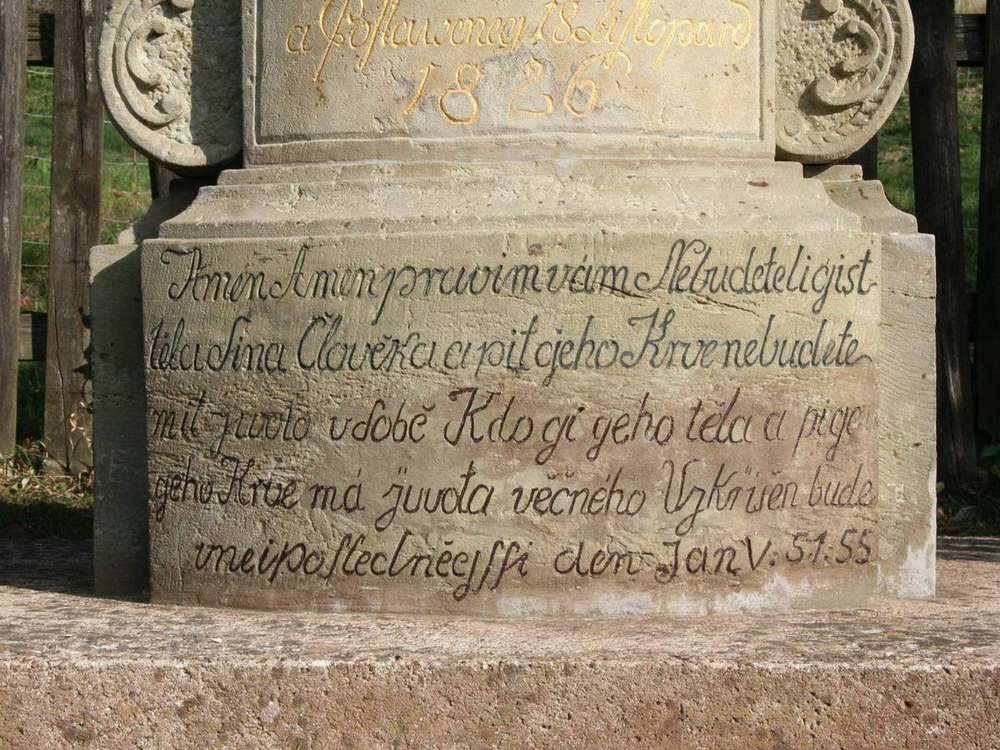 a Postaweneg 18 Listopard
1826
Amen Amen prawim vám Nebudeteli gist
těla Sina Člověka a pit gjeho Krve nebudete
mít žjvota v Sobě Kdo gi geho těla a pige
geho Krve má žjvota věčného Vzkřišen bude
vnei poslednĕgssi den Jan V. 51. 55